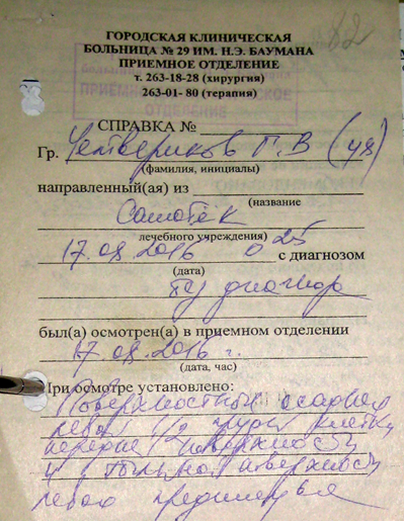 82
ГОРОДСКАЯ КЛИНИЧЕСКАЯ
БОЛЬНИЦА № 29 ИМ. Н.Э. БАУМАНА
ПРИЕМНОЕ ОТДЕЛЕНИЕ
т. 263-18-28 (хирургия)
263-01- 80 (терапия)
ОТДЕЛЕНИЕ
СПРАВКА №
Гр. Четвериков Г. В
(фамилия, инициалы)
направленный(ая) из
(название
Самотёк
лечебного учреждения)
17.08.2016 0 25 с диагнозом
(дата)
диагноз
был(а) осмотрен(а) в приемном отделении
17.08.2016 г.
(дата, час)
При осмотре установлено:
Поверхностные
левой 1/2 грудн клетки
поверхности
и поверхности
левого предплечья